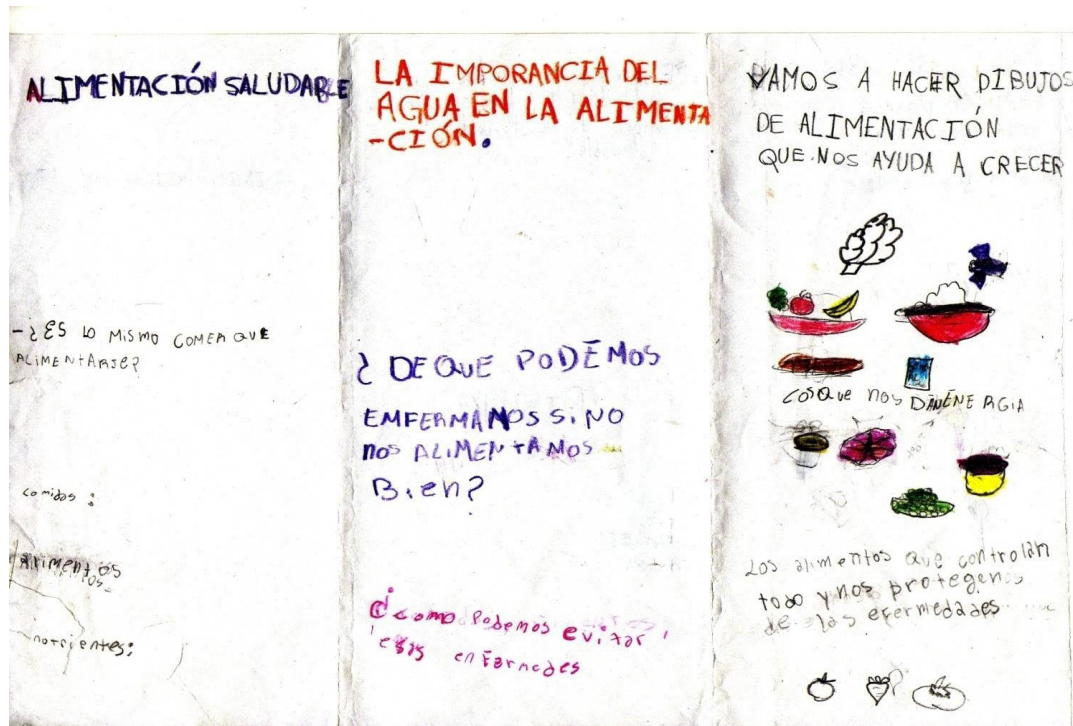 ALIMENTACIÓN SALUDABLE
- ¿ES LO MISMO COMER QUE
ALIMENTARSE?
comidas:
alimentos
notrientes:
LA IMPORANCIA DEL
AGUA EN LA ALIMENTA
-CIÓN.
¿DE QUE PODEMOS
EMFERMANOS Si NO
nos ALiMENTAMOS
Bien?
¿como Podemos evitar
esas enfarnedes
VAMOS A HACER DIBUJOS
DE ALIMENTACIÓN
QUE NOS AYUDA A CRECER
COSQue nos DANENERGIA
Los alimentos que controlan
todo y nos protegenos
de las efermedades